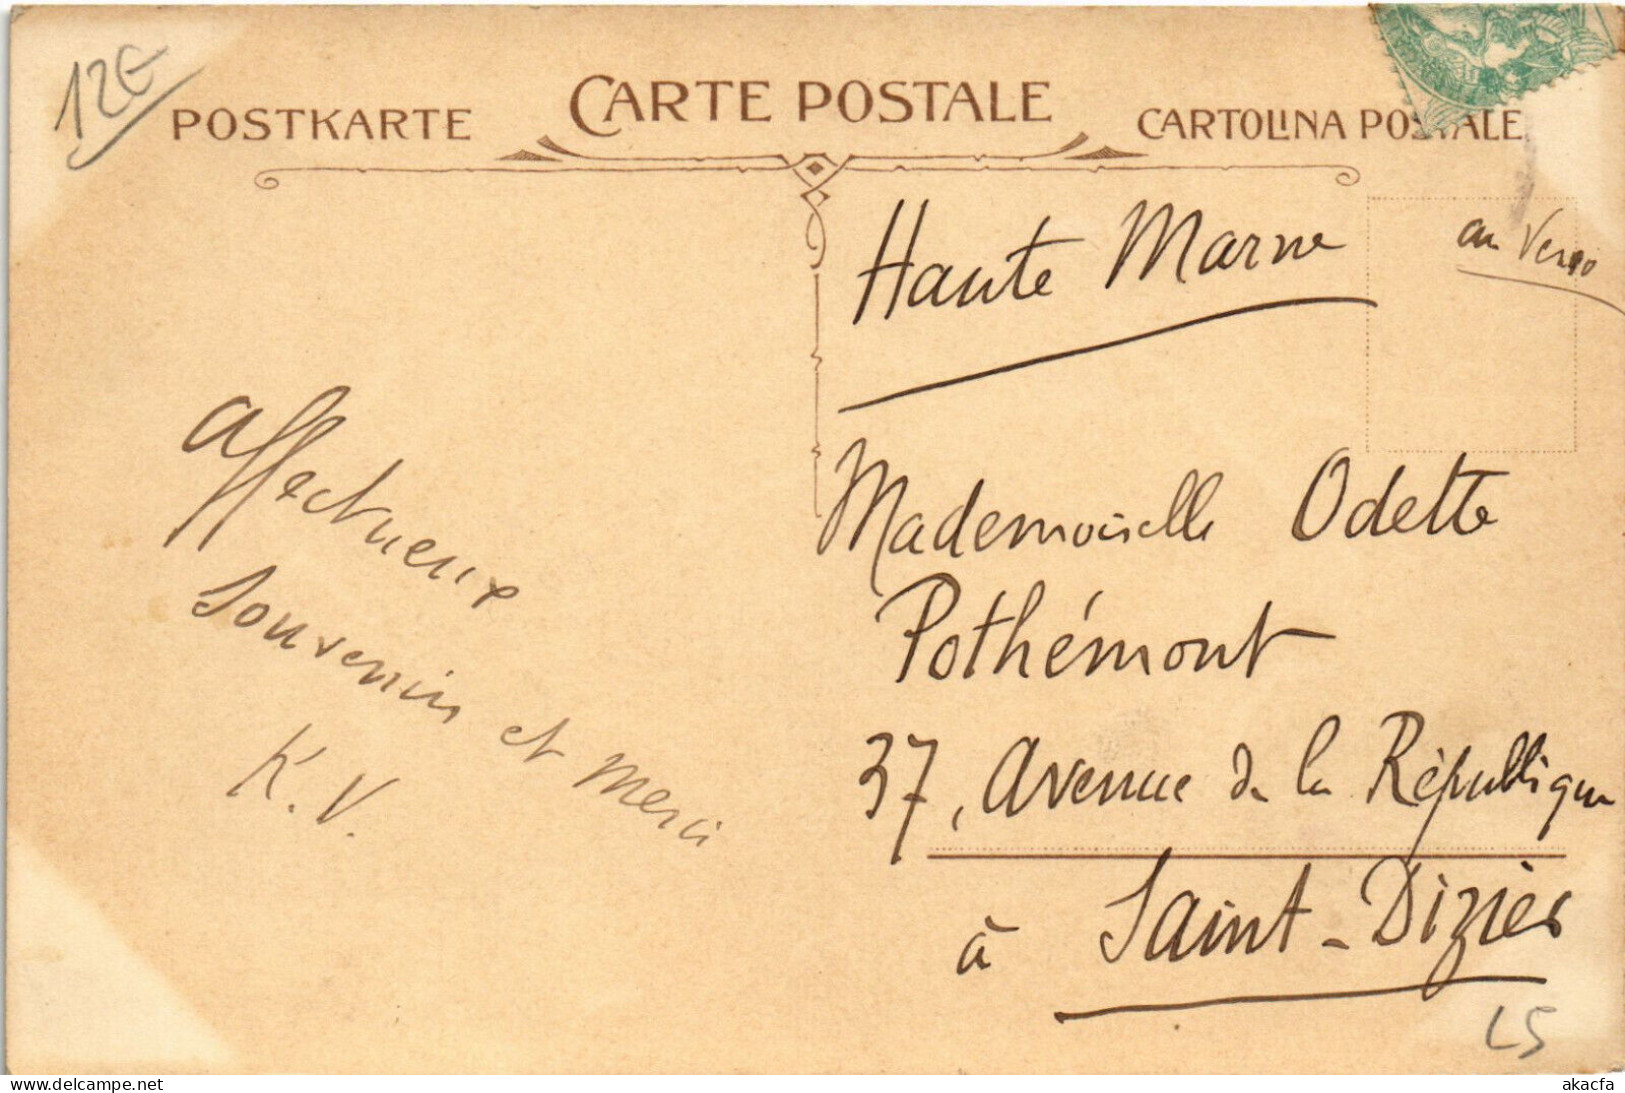 12E
POSTKARTE
CARTE POSTALE
CARTOLINA POSTALE
au Verso
Haute Marne
Affectueux
Souvenirs et merci
K. V.
Mademoiselle Odette
Pothémont
37, Avenue de la République
à Saint-Dizier
L5
akacfa-www.delcampe.net
akacfa